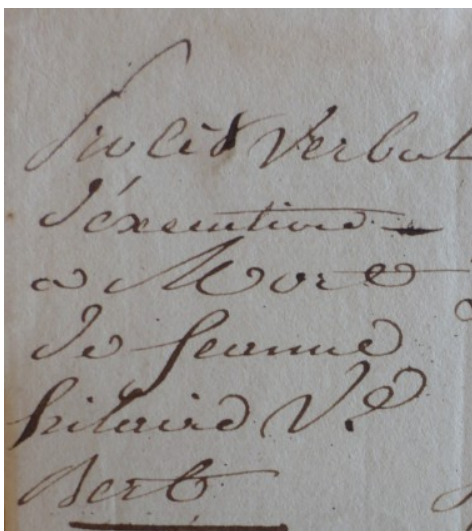 Procès Verbal
d'éxecution
a Mort
de Jeanne
hilaire Ve
Bert